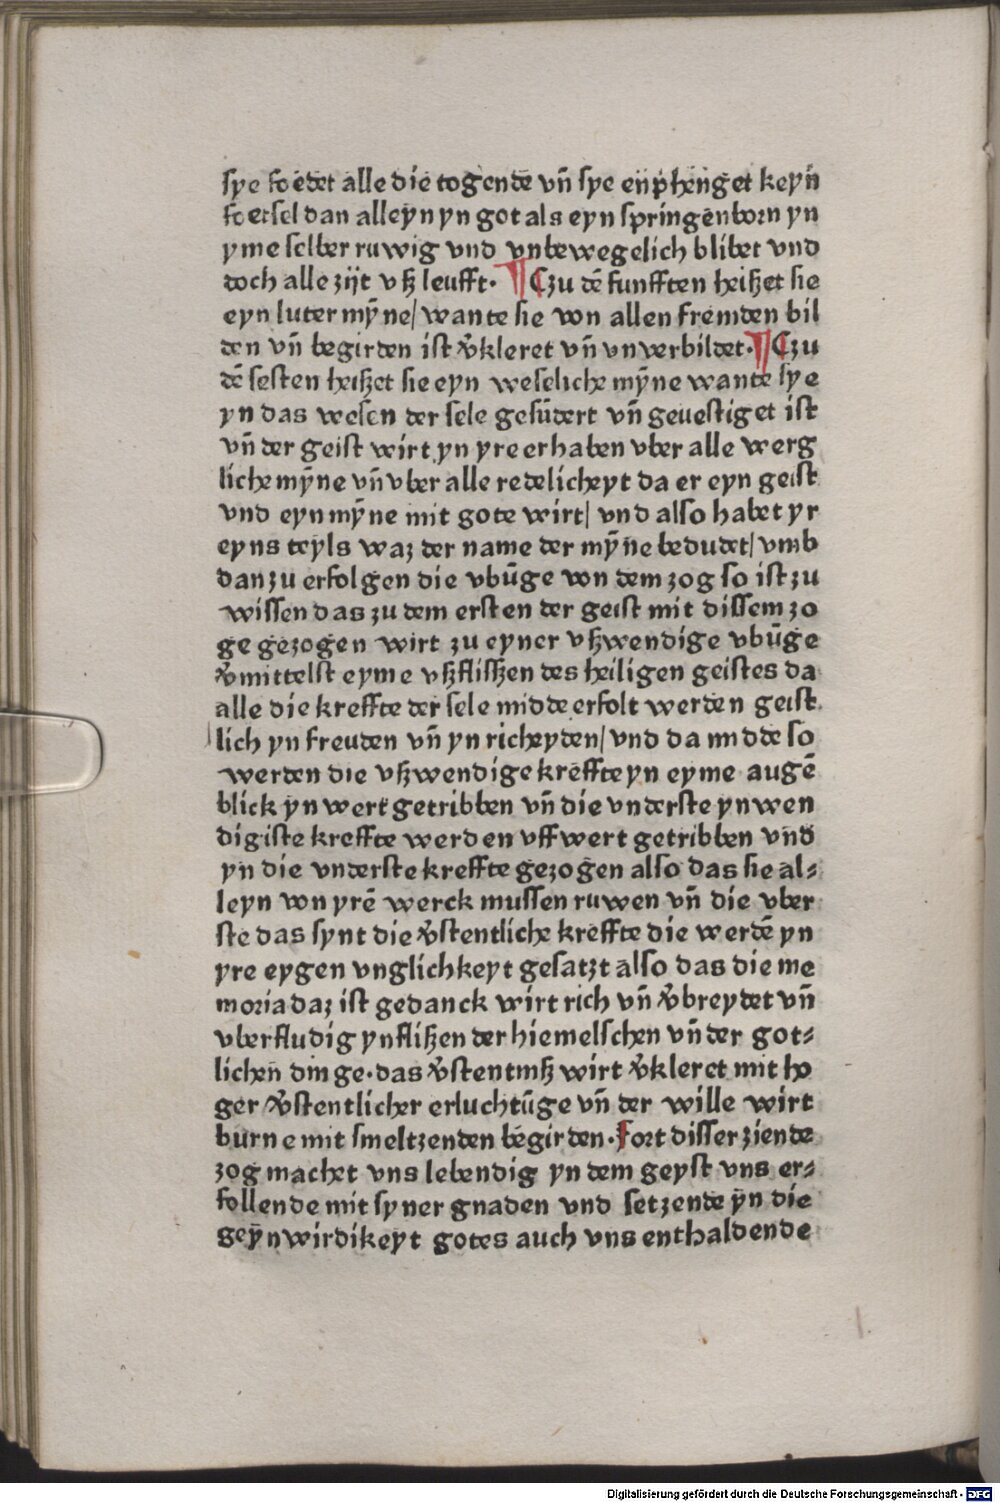 sye foedet alle die togende vn̄ sye enphenget keyn
foetsel dan alleyn yn got als eyn springenborn yn
yme selber ruwig vnd vnbewegelich blibet vnd
doch alle zijt vß leufft· ¶ Czu dē funfften heißet sie
eyn luter mȳne/ wante sie von allen fremden bil
den vn̄ begirden ist v̾kleret vn̄ vnverbildet·¶ Czu
dē sesten heißet sie eyn weseliche mȳne wante sye
yn das wesen der sele gesūdert vn̄ geuestiget ist
vn̄ der geist wirt yn yre erhaben vber alle werg
liche mȳne vn̄ vber alle redelicheyt da er eyn geist
vnd eyn mȳne mit gote wirt/ vnd also habet yr
eyns teyls waz der name der mȳne bedudet/ vmb
dan zu erfolgen die vbūge von dem zog so ist zu
wissen das zu dem ersten der geist mit dissem zo
ge gezogen wirt zu eyner vßwendige vbūge
v̾mittelst eyme vßflißen des heiligen geistes da
alle die kreffte der sele midde erfolt werden geist
lich yn freuden vn̄ yn richeyden/ vnd da midde so
werden die vßwendige kreffte yn eyme augē
blick yn wert getribben vn̄ die vnderste ynwen
digiste kreffte werden vffwert getribben vnd
yn die vnderste kreffte gezogen also das sie al⸗
leyn von yrē werck mussen ruwen vn̄ die vber
ste das synt die v̾stentliche kreffte die werdē yn
yre eygen vnglichkeyt gesatzt also das die me
moria daz ist gedanck wirt rich vn̄ v̾breydet vn̄
vberfludig ynflißen der hiemelschen vn̄ der got⸗
lichen dinge·das v̾stentniß wirt v̾kleret mit ho
ger v̾stentlicher erluchtūge vn̄ der wille wirt
burne mit smeltzenden begirden·Fort disser ziende
zog machet vns lebendig yn dem geyst vns er⸗
follende mit syner gnaden vnd setzende yn die
geynwirdikeyt gotes auch vns enthaldende
Digitalisierung gefördert durch die Deutsche Forschungsgemeinschaft - DFG